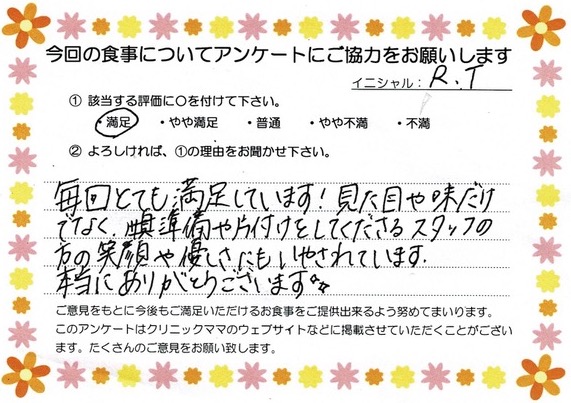 今回の食事についてアンケートにご協力をお願いします
イニシャル： R.T
① 該当する評価に○を付けて下さい。
・満足 ・やや満足 ・普通 ・やや不満 ・不満
② よろしければ、①の理由をお聞かせ下さい。
毎回とても満足しています！見た目や味だけ
でなく、準備や片付けをしてくださるスタッフの
方の笑顔や優しさにもいやされています。
本当にありがとうございます
ご意見をもとに今後もご満足いただけるお食事をご提供出来るよう努めてまいります。
このアンケートはクリニックママのウェブサイトなどに掲載させていただくことがござい
ます。たくさんのご意見をお願い致します。